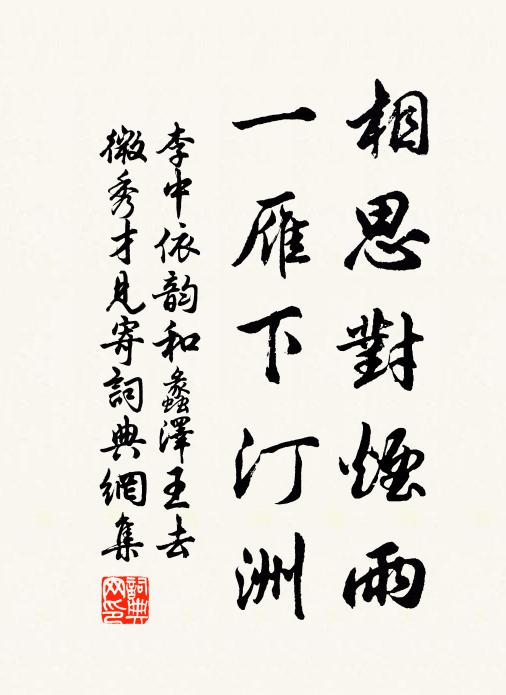 相思對煙雨
一雁下汀洲
李中依韵和蠡澤王去
微秀才見寄詞典網集
詞典
网印